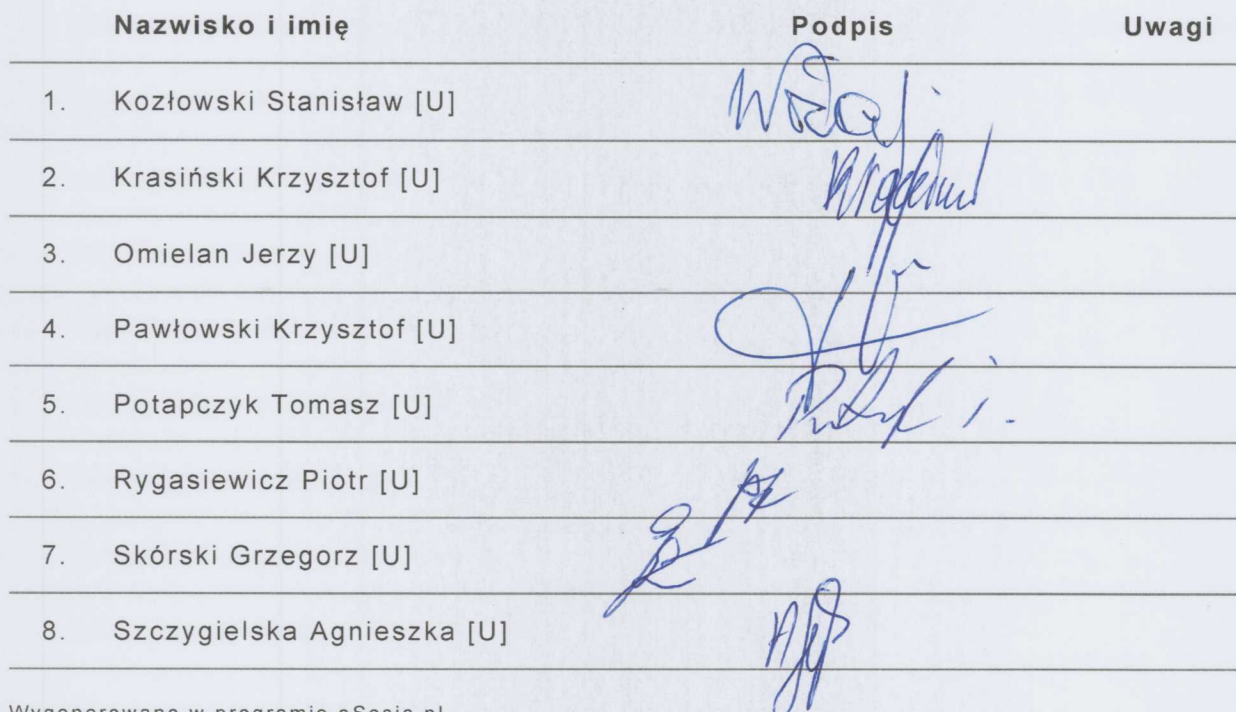 Nazwisko i imię Podpis Uwagi
1. Kozłowski Stanisław [U]
2. Krasiński Krzysztof [U]
3. Omielan Jerzy [U]
4. Pawłowski Krzysztof [U]
5. Potapczyk Tomasz [U]
6. Rygasiewicz Piotr [U]
7. Skórski Grzegorz [U]
8. Szczygielska Agnieszka [U]
Wygenerowano w programie eSesja.pl